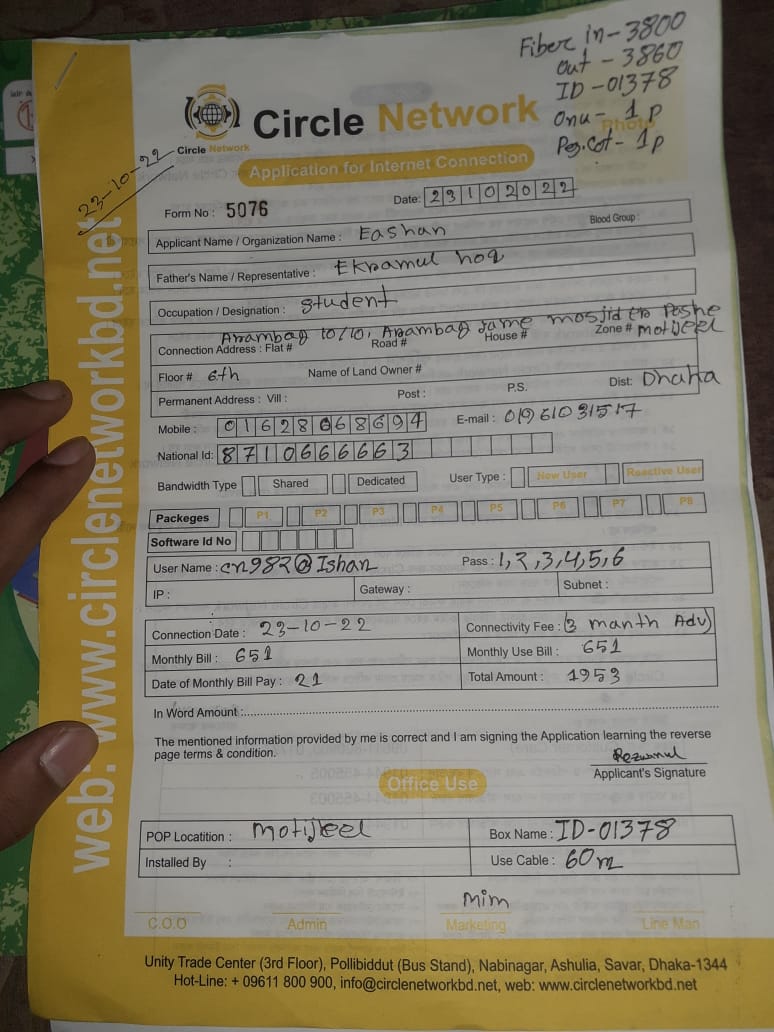 Fiber in - 3800
out - 3860
ID - 01378
Onu - 1 P
Pg.Cot - 1p
Photo
23-10-22
Circle Network
Circle Network
Application for Internet Connection
Form No : 5076
Date: 23102022
Applicant Name / Organization Name : Eashan Blood Group :
Father's Name / Representative : Ekramul hoq
Occupation / Designation : Student
Arambag 10/10, Arambag Jame mosjid er Poshe
Connection Address : Flat # Road # House # Zone # motijeel
Floor # 6th Name of Land Owner #
Permanent Address : Vill : Post : P.S. Dist: Dhaka
Mobile : 01628068694 E-mail : 01961031517
National Id: 8710666663
Bandwidth Type Shared Dedicated User Type : New User Reactive User
Packeges P1 P2 P3 P4 P5 P6 P7 P8
Software Id No
User Name : cn982@Ishan Pass : 1,2,3,4,5,6
IP : Gateway : Subnet :
Connection Date : 23-10-22 Connectivity Fee : (3 manth Adv)
Monthly Bill : 651 Monthly Use Bill : 651
Date of Monthly Bill Pay : 21 Total Amount : 1953
In Word Amount :
The mentioned information provided by me is correct and I am signing the Application learning the reverse
page terms & condition.
Rezwanul
Applicant's Signature
Office Use
POP Locatition : motijheel Box Name : ID-01378
Installed By : Use Cable : 60m
mim
C.O.O Admin Marketing Line Man
Unity Trade Center (3rd Floor), Pollibiddut (Bus Stand), Nabinagar, Ashulia, Savar, Dhaka-1344
Hot-Line: + 09611 800 900, info@circlenetworkbd.net, web: www.circlenetworkbd.net
web: www.circlenetworkbd.net